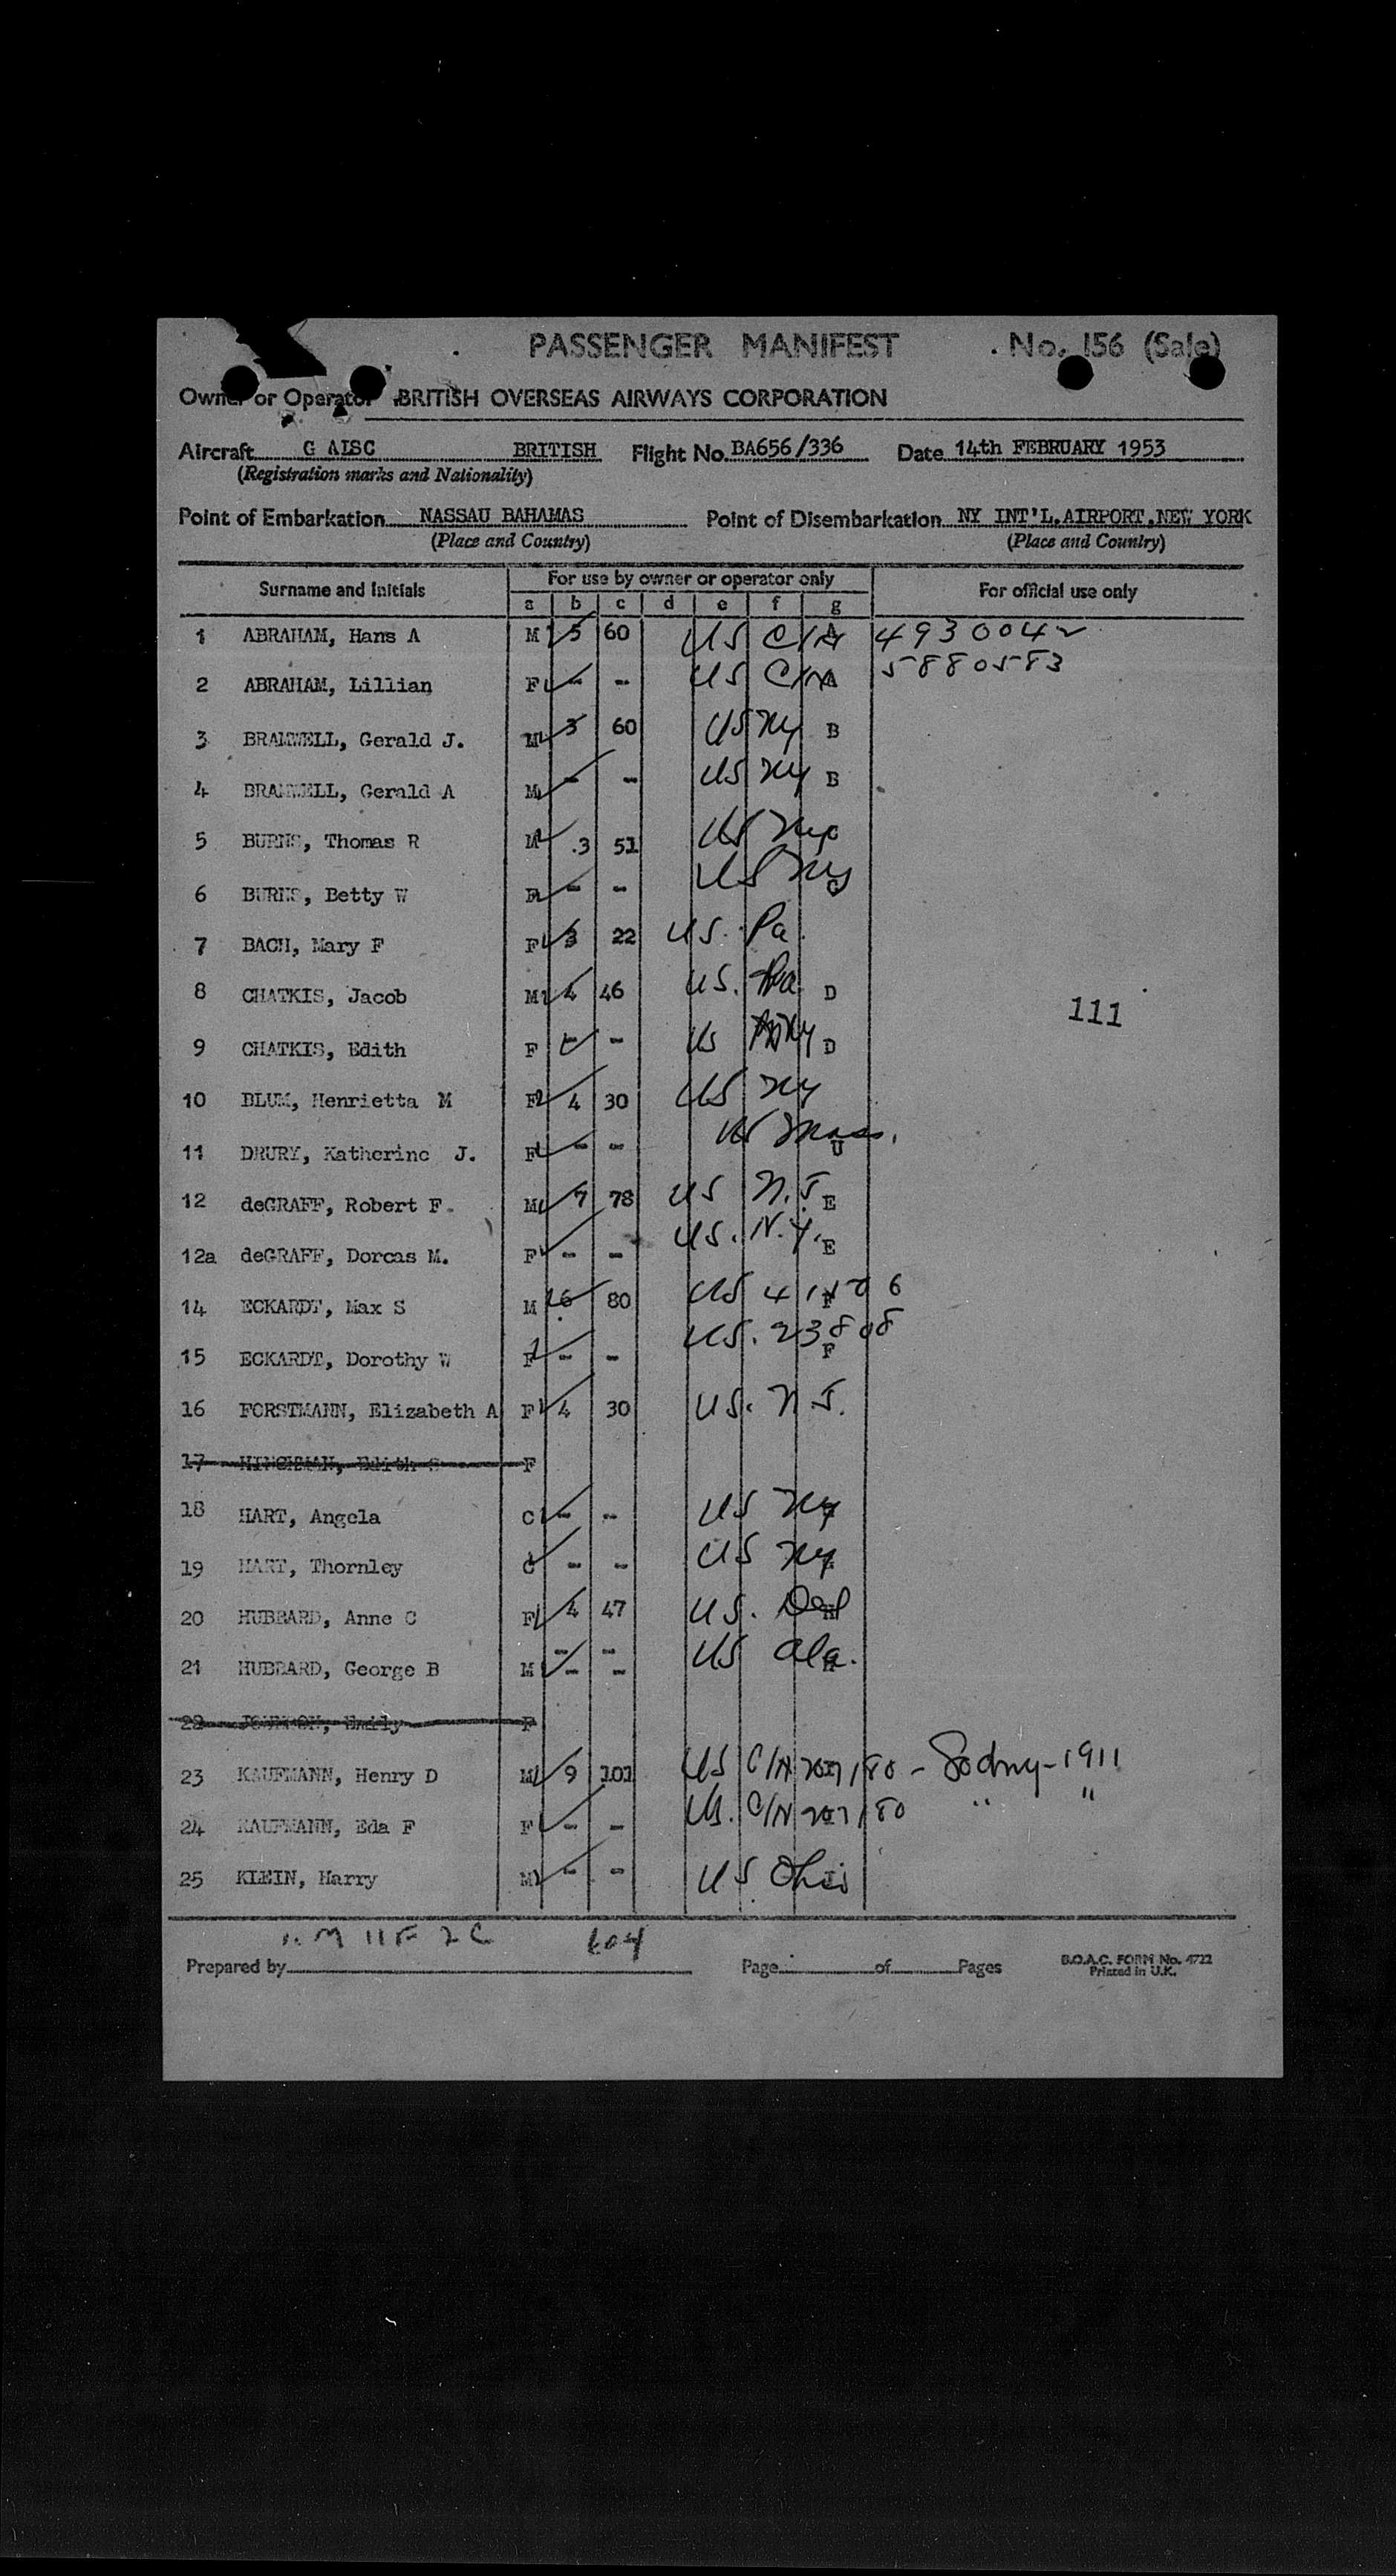 PASSENGER MANIFEST No. 156 (Sale)
Owner or Operator BRITISH OVERSEAS AIRWAYS CORPORATION
Aircraft G ALSC BRITISH Flight No. BA656/336 Date 14th FEBRUARY 1953
(Registration marks and Nationality)
Point of Embarkation NASSAU BAHAMAS Point of Disembarkation NY INT'L.AIRPORT, NEW YORK
(Place and Country) (Place and Country)
Surname and Initials For use by owner or operator only For official use only
a b c d e f g
1 ABRAHAM, Hans A M 5 60 US C/N A 493004
2 ABRAHAM, Lillian F - - US C/N A 5880583
3 BRAMWELL, Gerald J. M 3 60 US NY B
4 BRAMWELL, Gerald A M - - US NY B
5 BURNS, Thomas R M 3 51 US NY C
6 BURNS, Betty W F - - US NY C
7 BACH, Mary F F 3 22 US. Pa
8 CHATKIS, Jacob M 4 46 US. Pa D
111
9 CHATKIS, Edith F - - US NY D
10 BLUM, Henrietta M F 4 30 US NY
11 DRURY, Katherine J. F - - US Mass. U
12 deGRAFF, Robert F. M 7 78 US N.J E
12a deGRAFF, Dorcas M. F - - US. N.Y. E
14 ECKARDT, Max S M 6 80 US F
15 ECKARDT, Dorothy W F - - US. 23808 F
16 FORSTMANN, Elizabeth A F 4 30 US. N J.
17 HINCHMAN, Edith S F
18 HART, Angela C - - US NY
19 HART, Thornley C - - US NY
20 HUBBARD, Anne C F 4 47 US. Del H
21 HUBBARD, George B M - - US Ala. H
22 JOHNSON, Emily F
23 KAUFMANN, Henry D M 9 101 US C/N - 1911
24 KAUFMANN, Eda F F - - US. C/N " "
25 KLEIN, Harry M - - US Ohio
M 11F 2C 604
Prepared by Page of Pages B.O.A.C. FORM No. 4722
Printed in U.K.